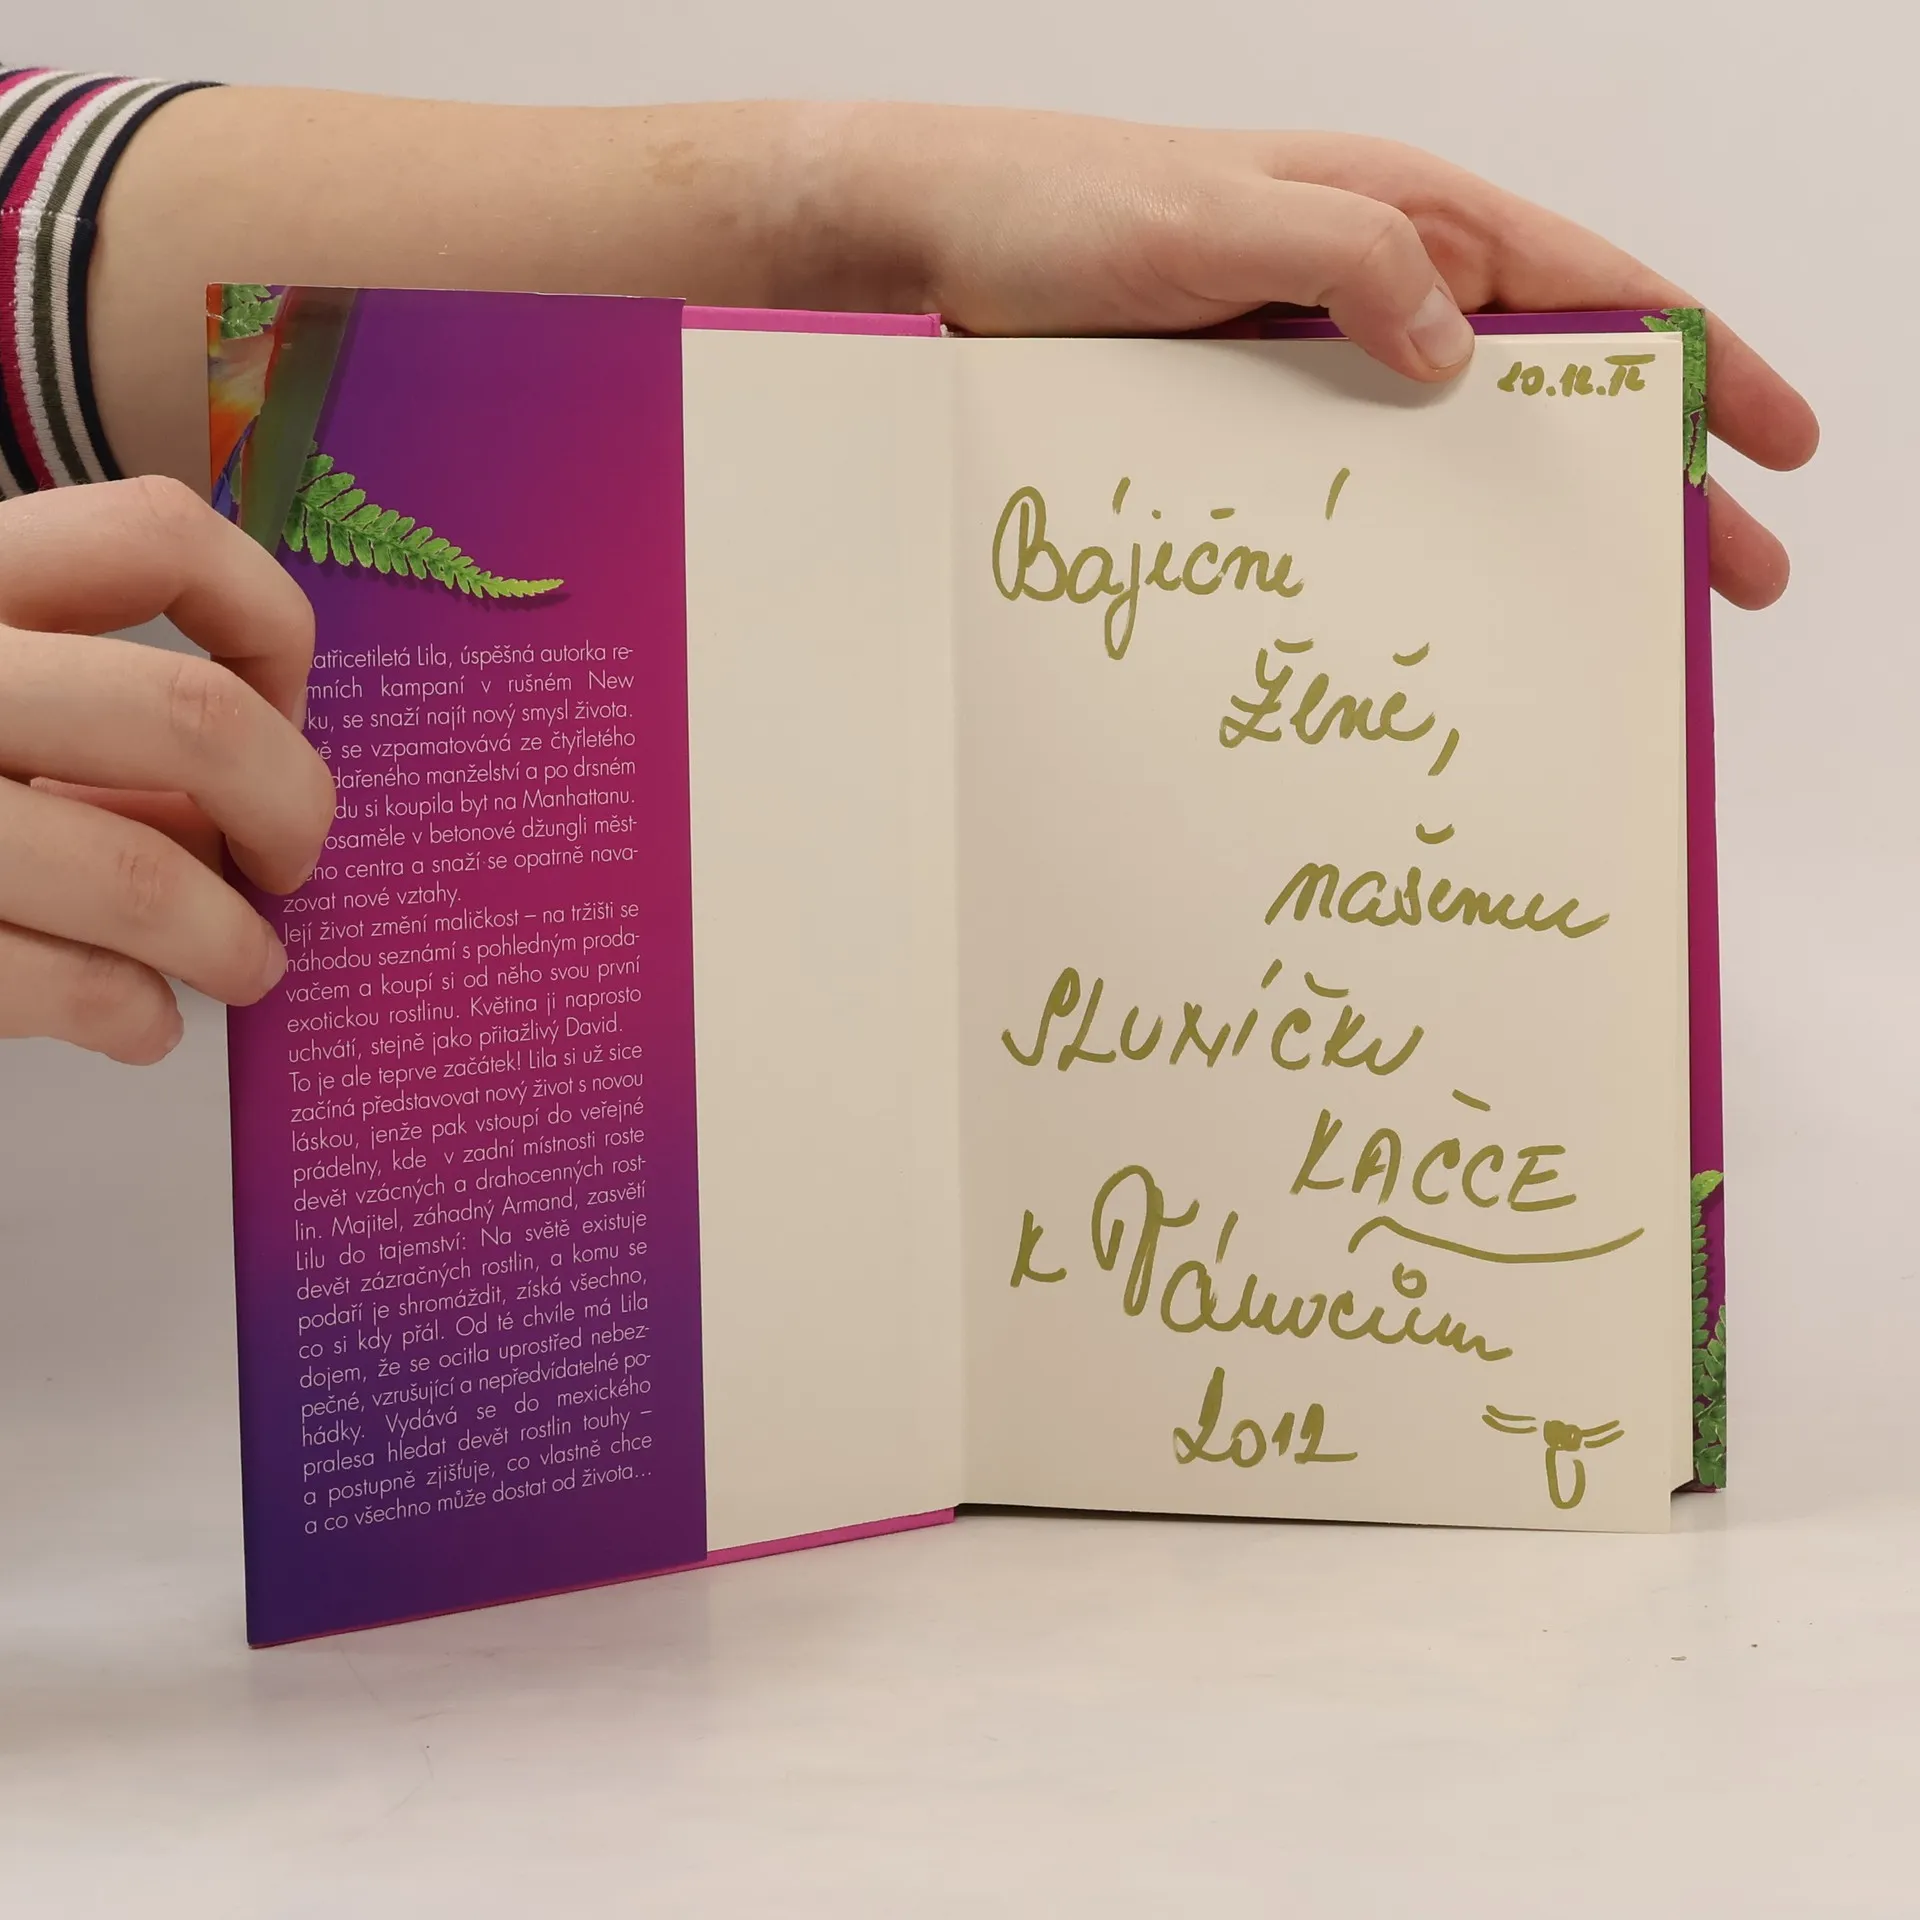 atřicetiletá Lila, úspěšná autorka re-
mních kampaní v rušném New
ku, se snaží najít nový smysl života.
vě se vzpamatovává ze čtyřletého
dařeného manželství a po drsném
du si koupila byt na Manhattanu.
osaměle v betonové džungli měst-
ho centra a snaží se opatrně nava-
zovat nové vztahy.
Její život změní maličkost – na tržišti se
náhodou seznámí s pohledným proda-
vačem a koupí si od něho svou první
exotickou rostlinu. Květina ji naprosto
uchvátí, stejně jako přitažlivý David.
To je ale teprve začátek! Lila si už sice
začíná představovat nový život s novou
láskou, jenže pak vstoupí do veřejné
prádelny, kde v zadní místnosti roste
devět vzácných a drahocenných rost-
lin. Majitel, záhadný Armand, zasvětí
Lilu do tajemství: Na světě existuje
devět zázračných rostlin, a komu se
podaří je shromáždit, získá všechno,
co si kdy přál. Od té chvíle má Lila
dojem, že se ocitla uprostřed nebez-
pečné, vzrušující a nepředvídatelné po-
hádky. Vydává se do mexického
pralesa hledat devět rostlin touhy –
a postupně zjišťuje, co vlastně chce
a co všechno může dostat od života...
Báječné
Ženě,
našemu
SLUNÍČKU
KAČCE
K Vánocům
2012